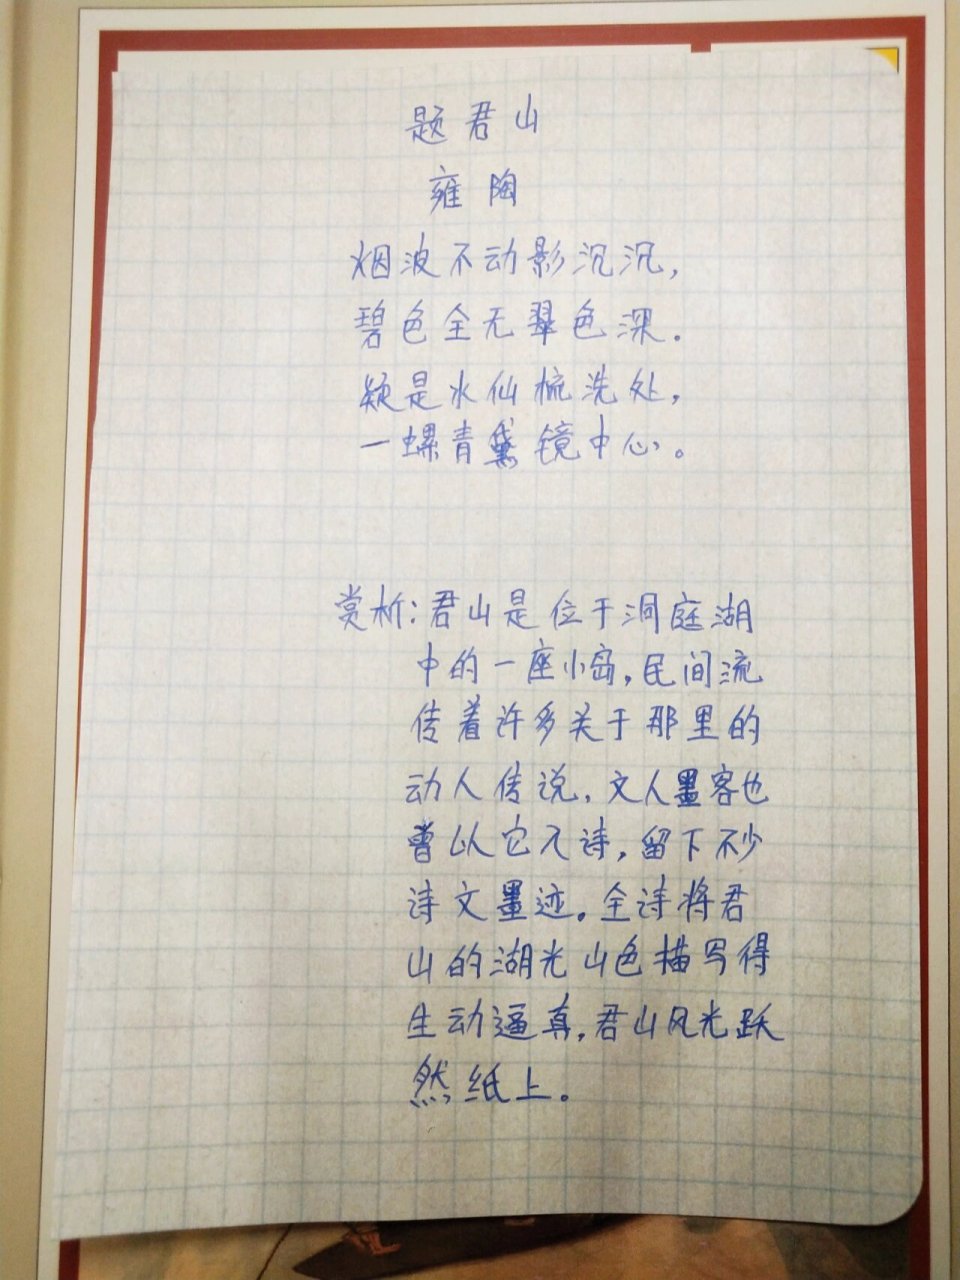 题君山
雍陶
烟波不动影沉沉，
碧色全无翠色深．
疑是水仙梳洗处，
一螺青黛镜中心。
赏析：君山是位于洞庭湖
中的一座小岛，民间流
传着许多关于那里的
动人传说，文人墨客也
曾以它入诗，留下不少
诗文墨迹。全诗将君
山的湖光山色描写得
生动逼真，君山风光跃
然纸上。